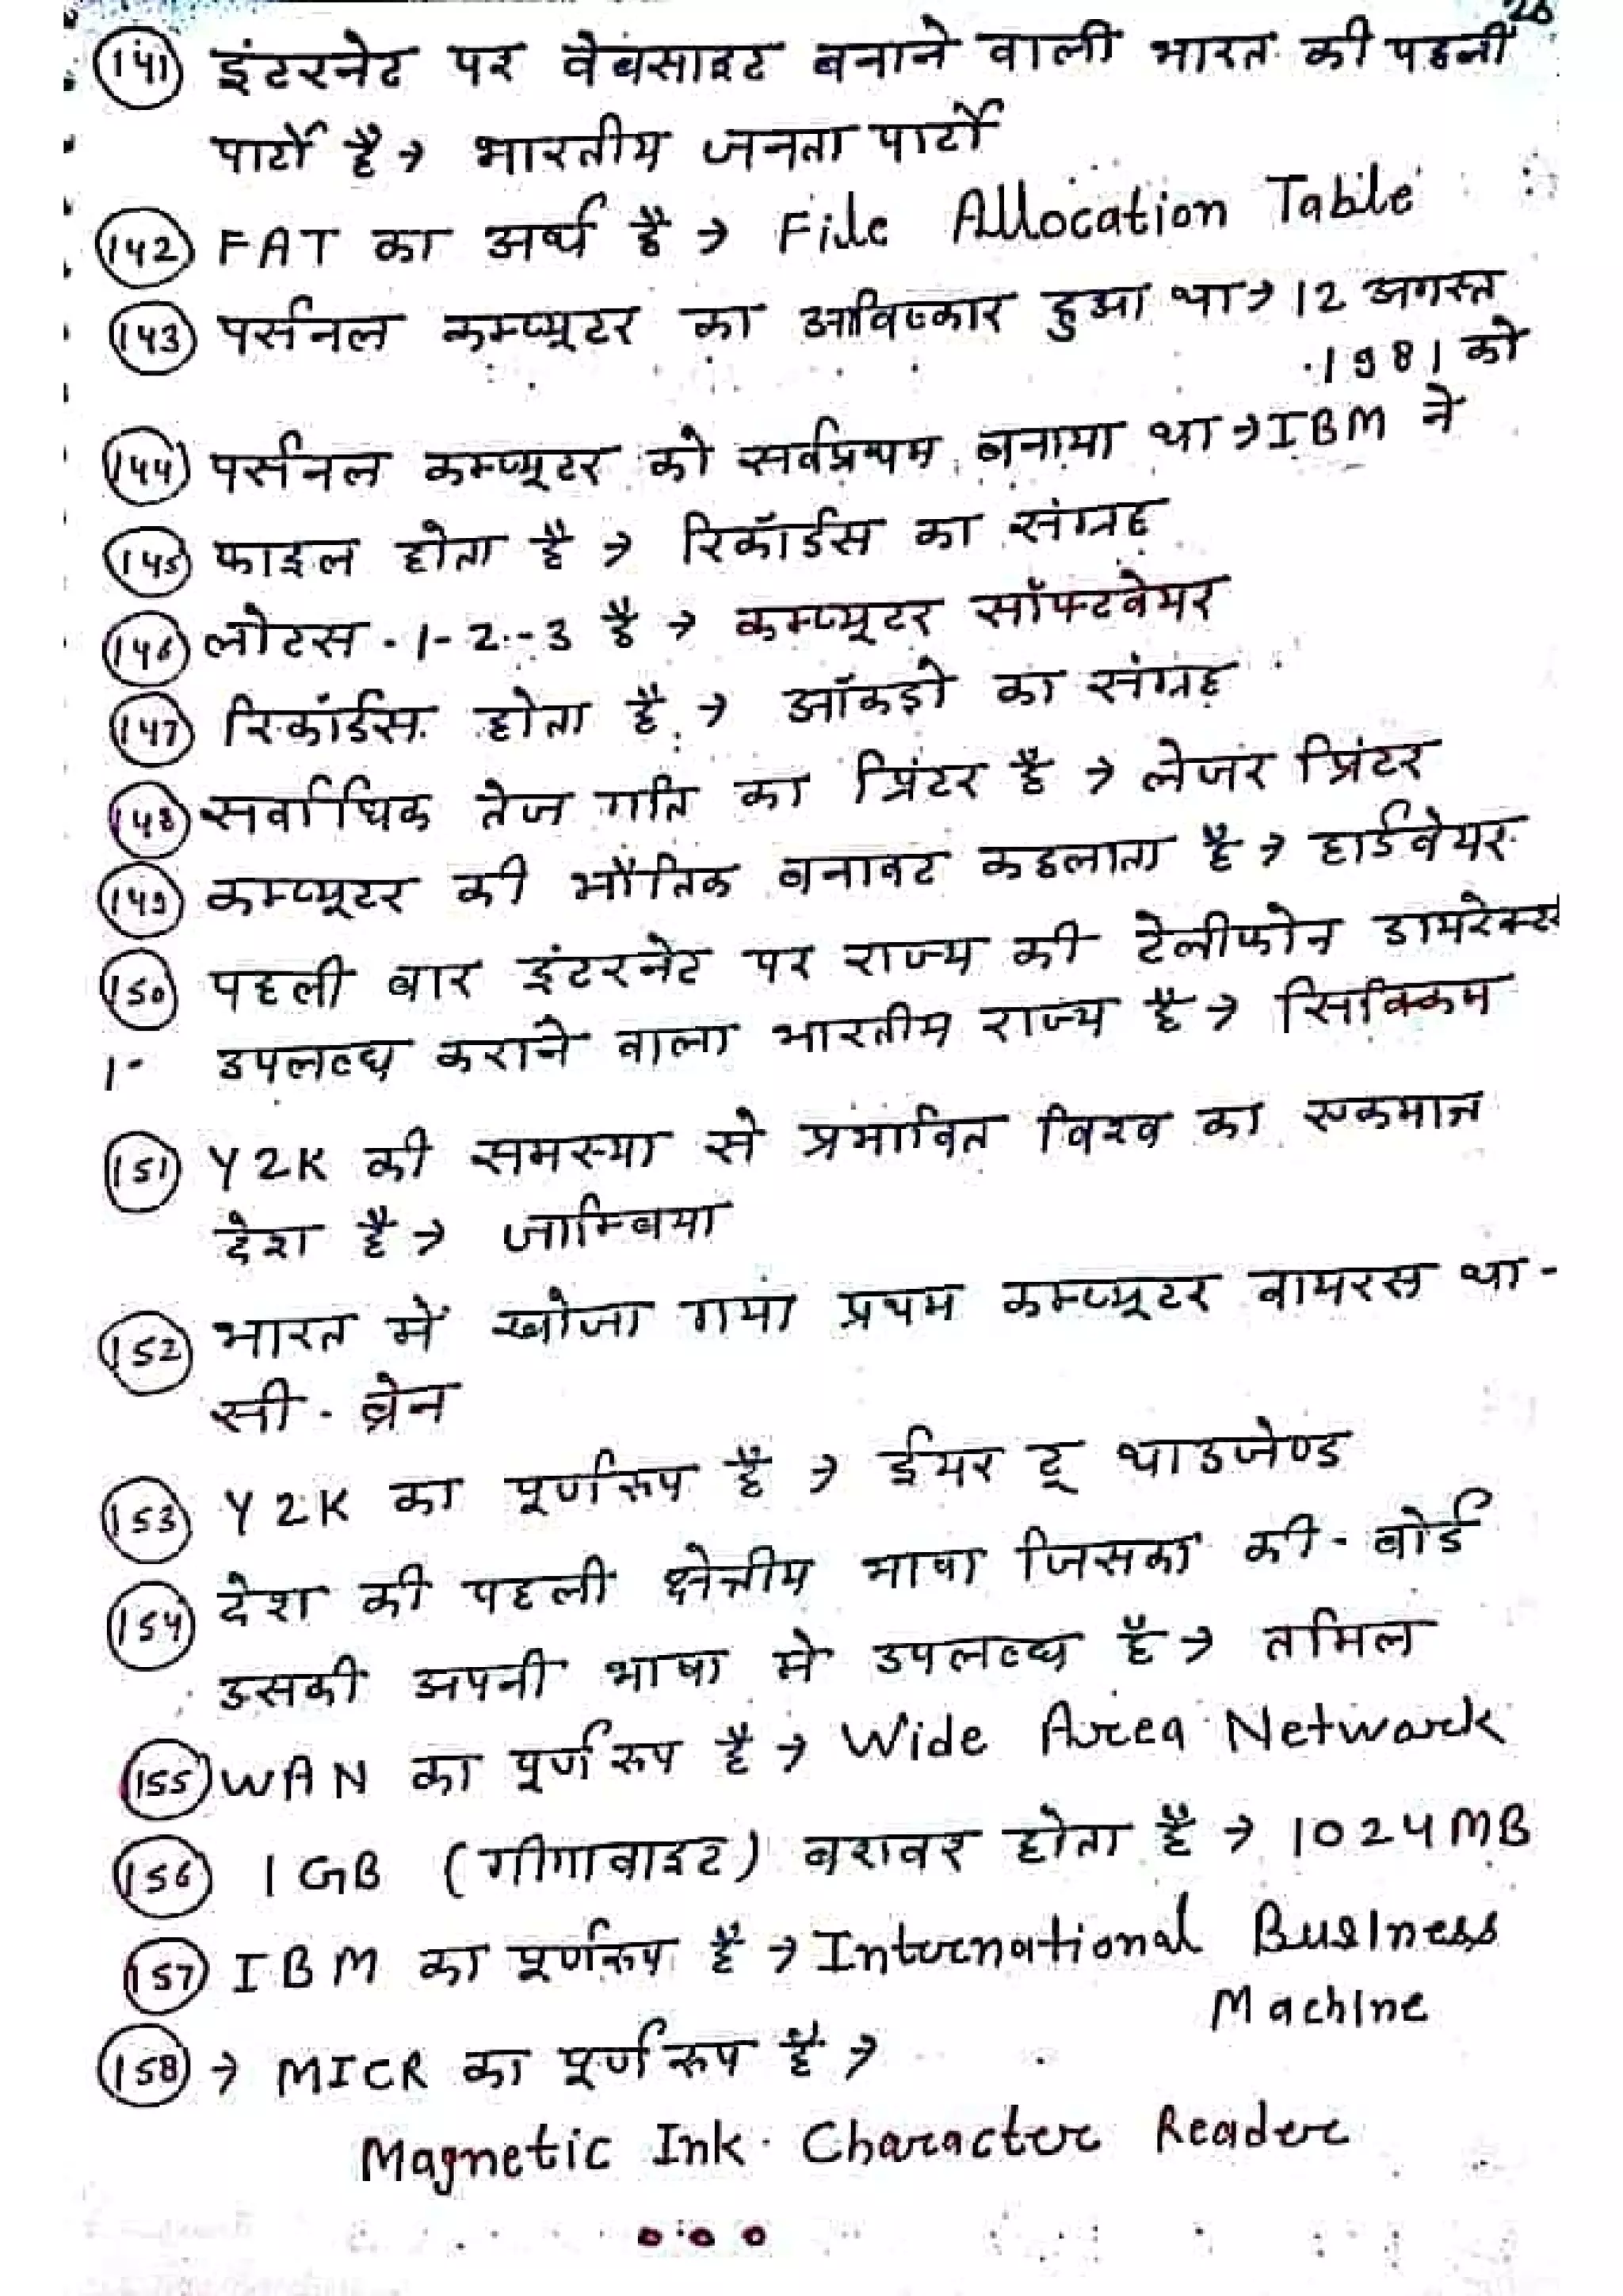 26
(141) इंटरनेट पर वेबसाइट बनाने वाली भारत की पहली
पार्टी है → भारतीय जनता पार्टी
(142) FAT का अर्थ है → File Allocation Table
(143) पर्सनल कम्प्यूटर का आविष्कार हुआ था → 12 अगस्त
1981 को
(144) पर्सनल कम्प्यूटर को सर्वप्रथम बनाया था → IBM ने
(145) फाइल होता है → रिकॉर्डस का संग्रह
(146) लोटस - 1-2-3 है → कम्प्यूटर सॉफ्टवेयर
(147) रिकॉर्डस होता है → ऑकड़ो का संग्रह
(148) सर्वाधिक तेज गति का प्रिंटर है → लेजर प्रिंटर
(149) कम्प्यूटर की भौतिक बनावट कहलाता है → हार्डवेयर
(150) पहली बार इंटरनेट पर राज्य की टेलीफोन
उपलब्ध कराने वाला भारतीय राज्य है → सिक्किम
(151) Y2K की समस्या से प्रभावित विश्व का एकमात्र
देश है → जाम्बिया
(152) भारत में खोजा गया प्रथम कम्प्यूटर वायरस था -
सी - ब्रेन
(153) Y2K का पूर्णरूप है → ईयर टू थाउजेण्ड
(154) देश की पहली क्षेत्रीय भाषा जिसका की - बोर्ड
उसकी अपनी भाषा मे उपलब्ध है → तमिल
(155) WAN का पूर्ण रूप है → Wide Area Network
(156) 1 GB (गीगाबाइट) बराबर होता है → 1024 MB
(157) IBM का पूर्णरूप है → International Business
Machine
(158) → MICR का पूर्ण रूप है →
Magnetic Ink Character Reader